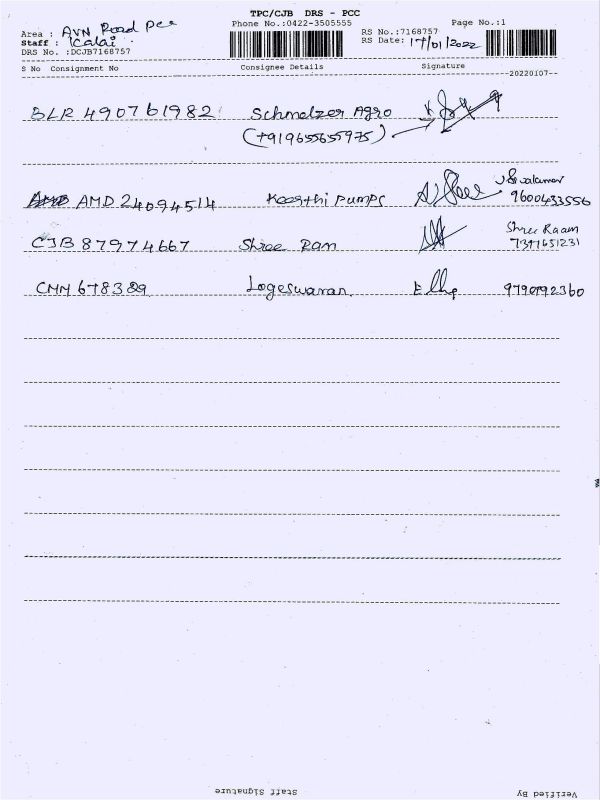 TPC/CJB DRS - PCC
Phone No.:0422-3505555
Page No.:1
Area : AVN Road Pcc
RS No.:7168757
Staff : Kalai
RS Date: 17/01/2022
DRS No. :DCJB7168757
S No Consignment No Consignee Details Signature
--20220107--
BLR 490761982 Schmelzer Agro
(+919655655975)
AMD 24094514 Keerthi Pumps 9600433556
CJB 87974667 Shree Ram Shree Raam
7397651231
CMM 678389 Logeswaran 9790192360
Staff Signature Verified By